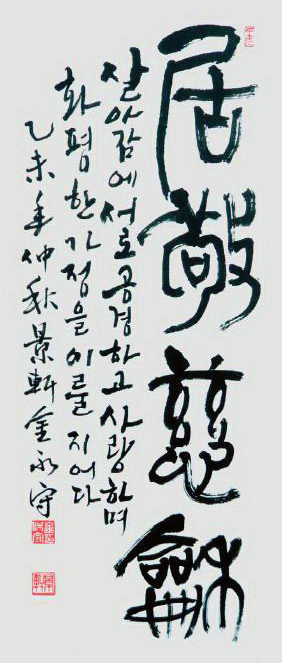 居敬慈龢
살아감에서로공경하고사랑하며
화평한가정을이룰지어다
乙未年仲秋 景軒金永守